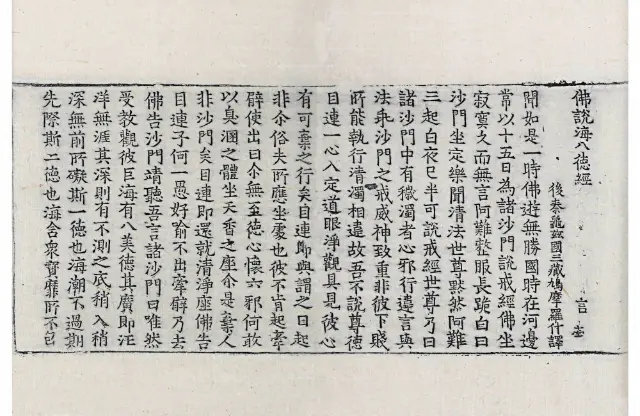 佛說海八德經　言 壹
後秦龜茲國三藏鳩摩羅什譯
聞如是一時佛遊無勝國時在河邊
常以十五日為諸沙門說戒經佛坐
寂寞久而無言阿難整服長跪白曰
沙門坐定樂聞清法世尊默然阿難
三起白夜已半可說戒經世尊乃曰
諸沙門中有穢濁者心邪行違言與
法乖沙門之戒威神致重非彼下賤
所能執行清濁相違故吾不說尊德
目連一心入定道眼淨觀具見彼心
有可棄之行矣目連即與謂之曰起
非尒俗夫所應坐處也彼不肯起牽
臂使出曰尒無至德心懷六邪何敢
以臭溷之體坐天香之座尒是棄人
非沙門矣目連即還就清淨座佛告
目連子何一愚好喻不出牽臂乃去
佛告沙門靖聽吾言諸沙門曰唯然
受教觀彼巨海有八美德其廣即汪
洋無涯其深則有不測之底稍入稍
深無前所礙斯一德也海潮不過期
先際斯二德也海含眾寶靡所不包